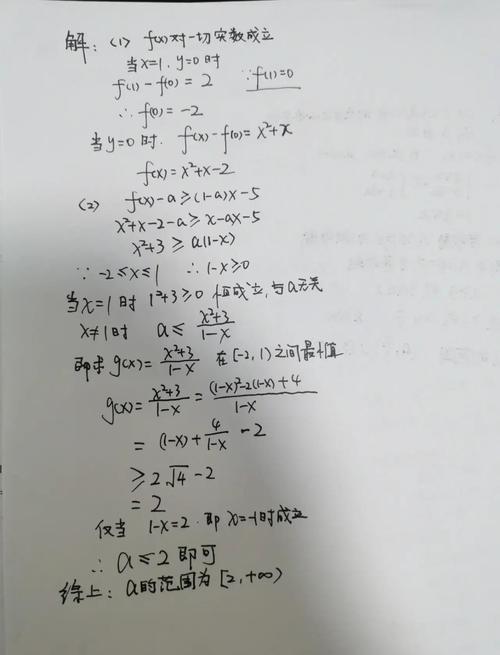 解：(1) f(x)对一切实数成立
当x=1, y=0时
f(1)-f(0)=2 ∵f(1)=0
∴f(0)=-2
当y=0时. f(x)-f(0)=x²+x
f(x)=x²+x-2
(2) f(x)-a≥(1-a)x-5
x²+x-2-a≥x-ax-5
x²+3≥a(1-x)
∵ -2≤x≤1 ∴1-x≥0
当x=1时 1²+3≥0 恒成立,与a无关
x≠1时 a≤(x²+3)/(1-x)
即求g(x)=(x²+3)/(1-x) 在[-2,1)之间最小值
g(x)=(x²+3)/(1-x)=((1-x)²-2(1-x)+4)/(1-x)
=(1-x)+4/(1-x)-2
≥2√4-2
=2
仅当 1-x=2.即x=-1时成立
∴a≤2即可
综上：a的范围为[2,+∞)